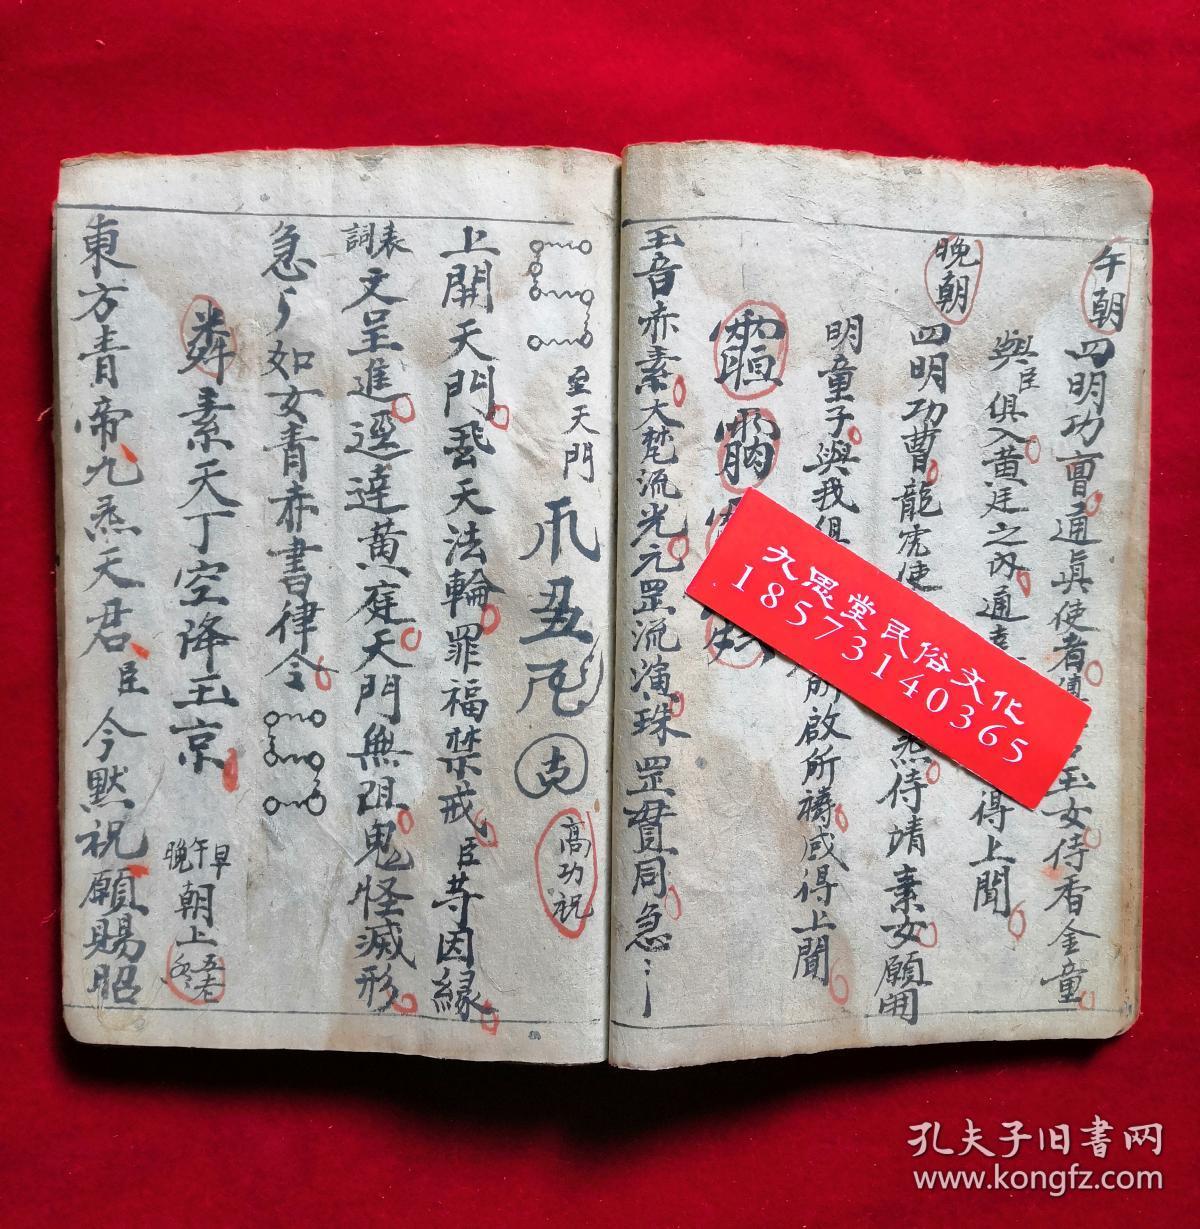 午朝
四明功曹通真使者 玉女侍香金童
與臣俱入黄廷之内通 得上聞
晚朝
四明功曹龍虎使 炁侍靖素女願開
明童子與我俱 所啟所禱咸得上聞
玉音赤素大梵流光元罡流演珠罡貫同急
至天門
高功祝
上開天門 天法輪罪福禁戒臣等因緣
表詞文呈進逕達黄庭天門無阻鬼怪滅形
急々如女青赤書律令
素天丁空降玉京
早午晚朝上五老
東方青帝九炁天君臣今默祝願賜昭
九思堂民俗文化
18573140365
孔夫子旧书网
www.kongfz.com